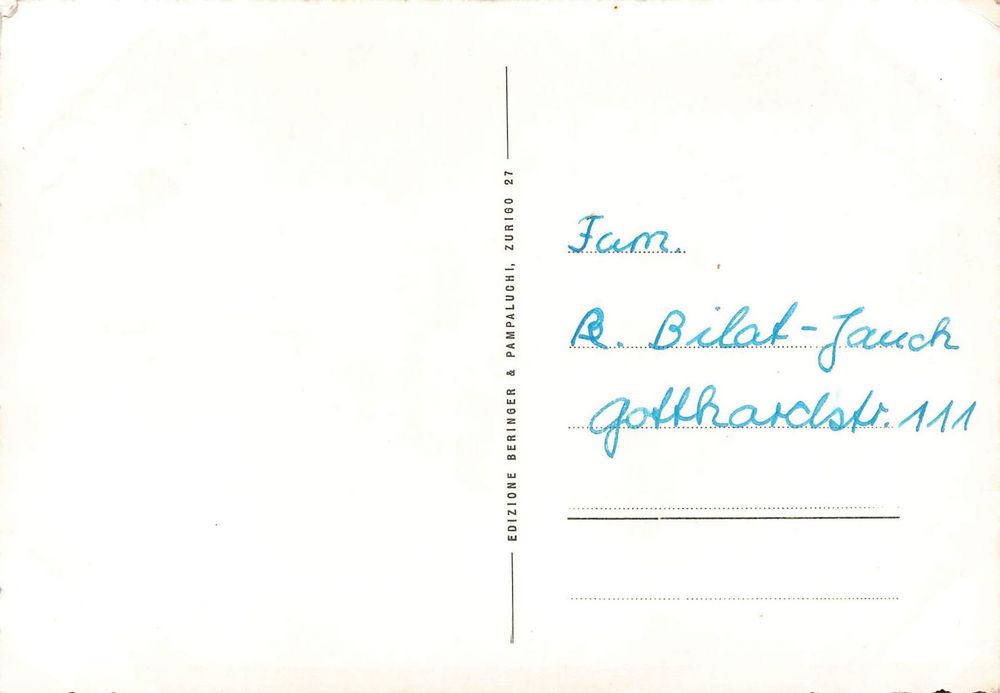 EDIZIONE BERINGER & PAMPALUCHI, ZURIGO 27
Fam.
R. Bilat-Jauch
Gotthardstr. 111